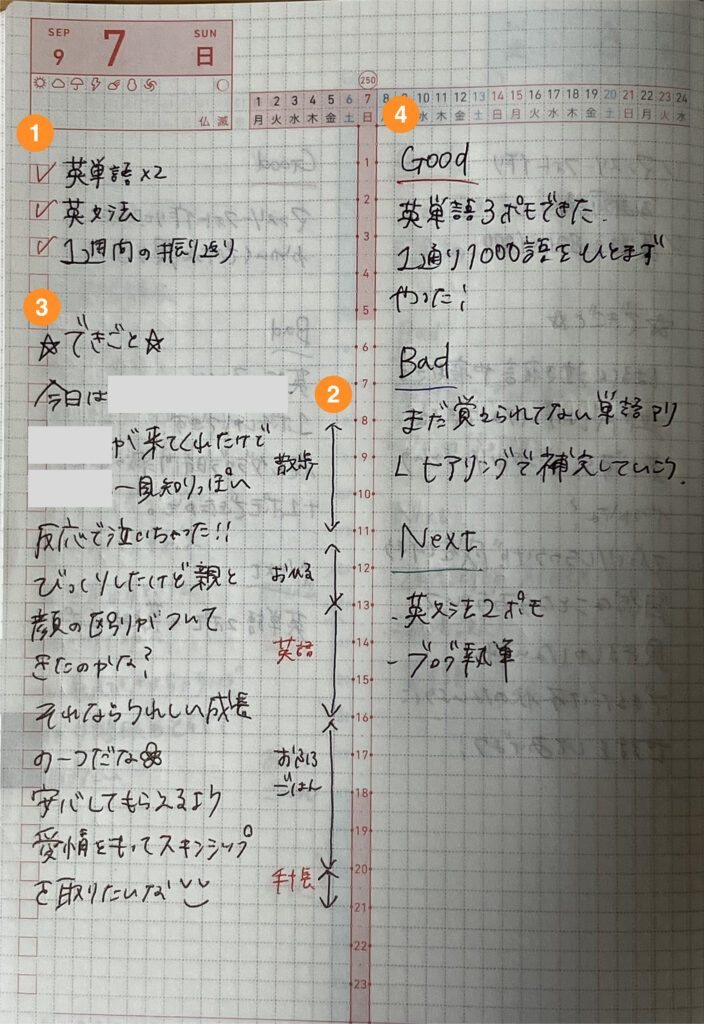 SEP
9
7
SUN
日
仏滅
250
1 2 3 4 5 6 7 8 10 11 12 13 14 15 16 17 18 19 20 21 22 23 24
月 火 水 木 金 土 日 水 木 金 土 日 月 火 水 木 金 土 日 月 火 水
1
✓ 英単語×2
✓ 英文法
✓ 1週間の振り返り
3
☆できごと☆
今日は
が来てくれたけど
一見知りっぽい
反応で泣いちゃった!!
びっくりしたけど親と
顔の区別がついて
きたのかな?
それならうれしい成長
の一つだな
安心してもらえるよう
愛情をもってスキンシップ
を取りたいな
2
散歩
おひる
英語
おふろ
ごはん
手帳
1
2
3
4
5
6
7
8
9
10
11
12
13
14
15
16
17
18
19
20
21
22
23
4
Good
英単語3ポモできた.
1通り1000語をひとまず
やった!
Bad
まだ覚えられてない単語アリ
└ヒアリングで補完していこう.
Next
-英文法2ポモ
-ブログ執筆